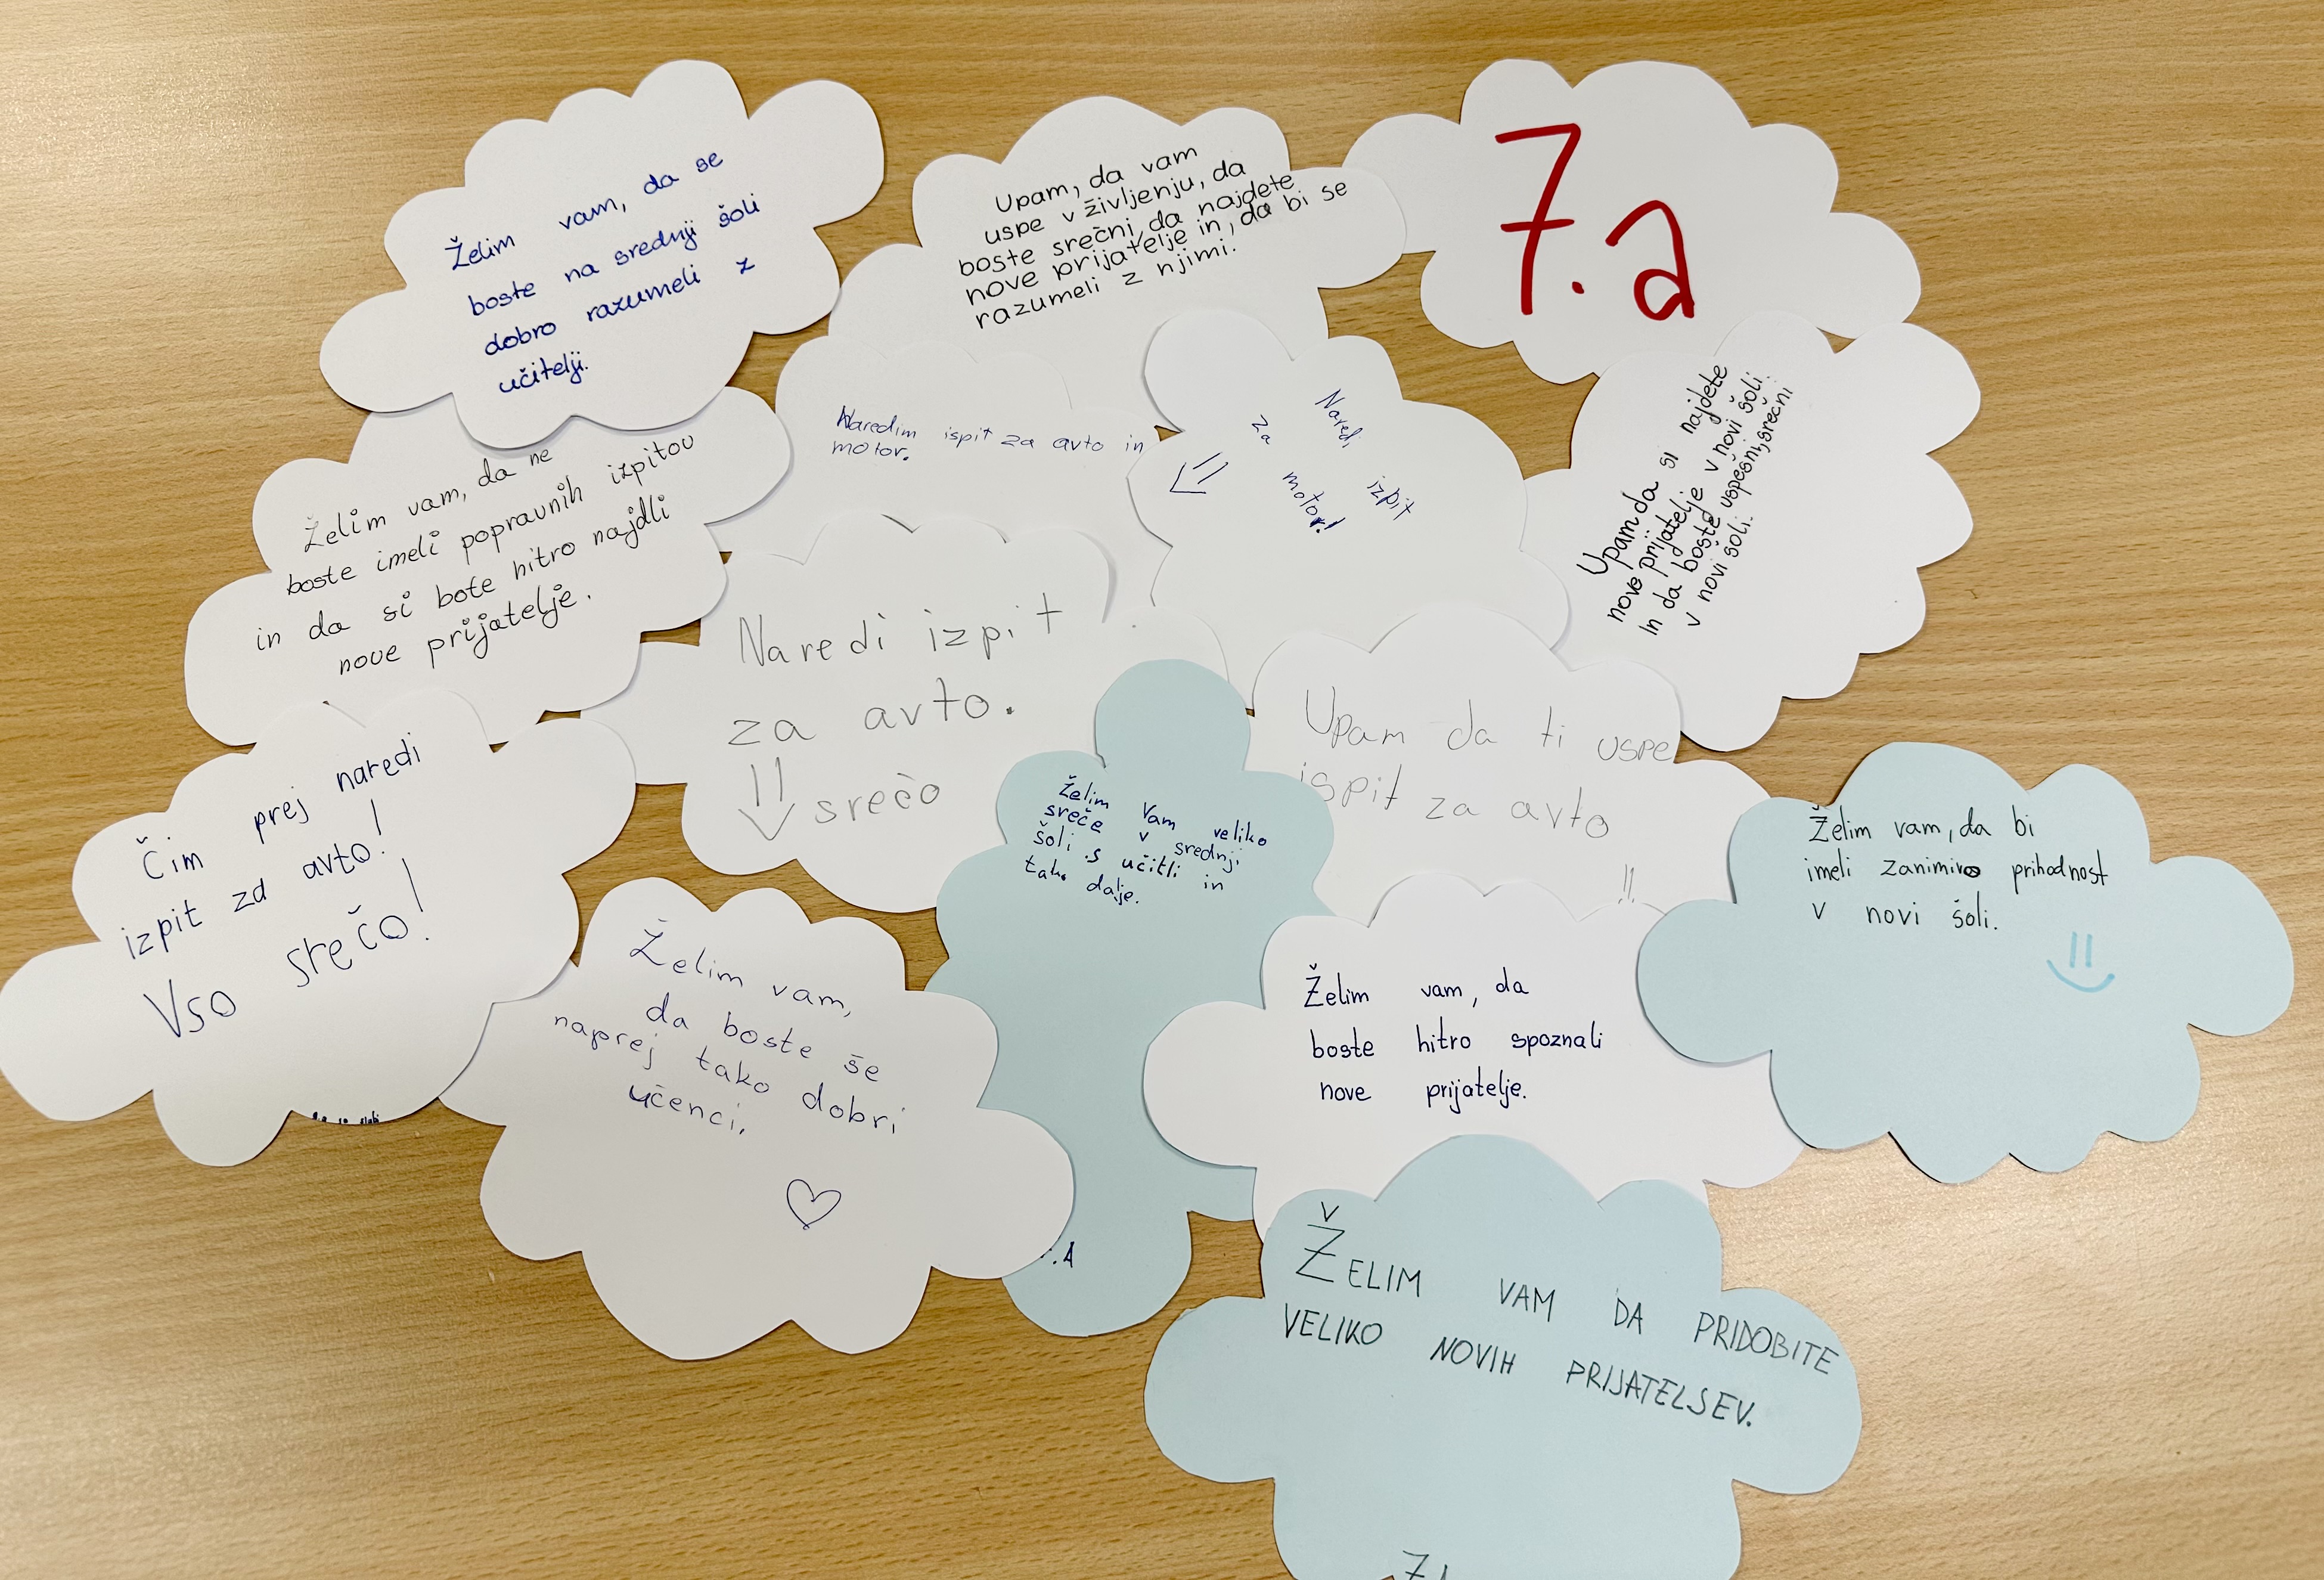 Želim vam, da se
boste na srednji šoli
dobro razumeli z
učitelji.
Upam, da vam
uspe v življenju, da
boste srečni, da najdete
nove prijatelje in, da bi se
razumeli z njimi.
7.a
Želim vam, da ne
boste imeli popravnih izpitov
in da si bote hitro najdli
nove prijatelje.
Naredim ispit za avto in
motor.
Naredi izpit
za motor!
Upam da si najdete
nove prijatelje v novi šoli.
In da boste uspešni, srečni
v novi šoli.
Naredi izpit
za avto.
srečo
Upam da ti uspe
ispit za avto
!!
Čim prej naredi
izpit za avto!
Vso srečo!
Želim Vam veliko
sreče v srednji
šoli s učitli in
tako dalje.
.A
Želim vam, da bi
imeli zanimivo prihodnost
v novi šoli.
Želim vam,
da boste še
naprej tako dobri
učenci.
Želim vam, da
boste hitro spoznali
nove prijatelje.
ŽELIM VAM DA PRIDOBITE
VELIKO NOVIH PRIJATELSEV.